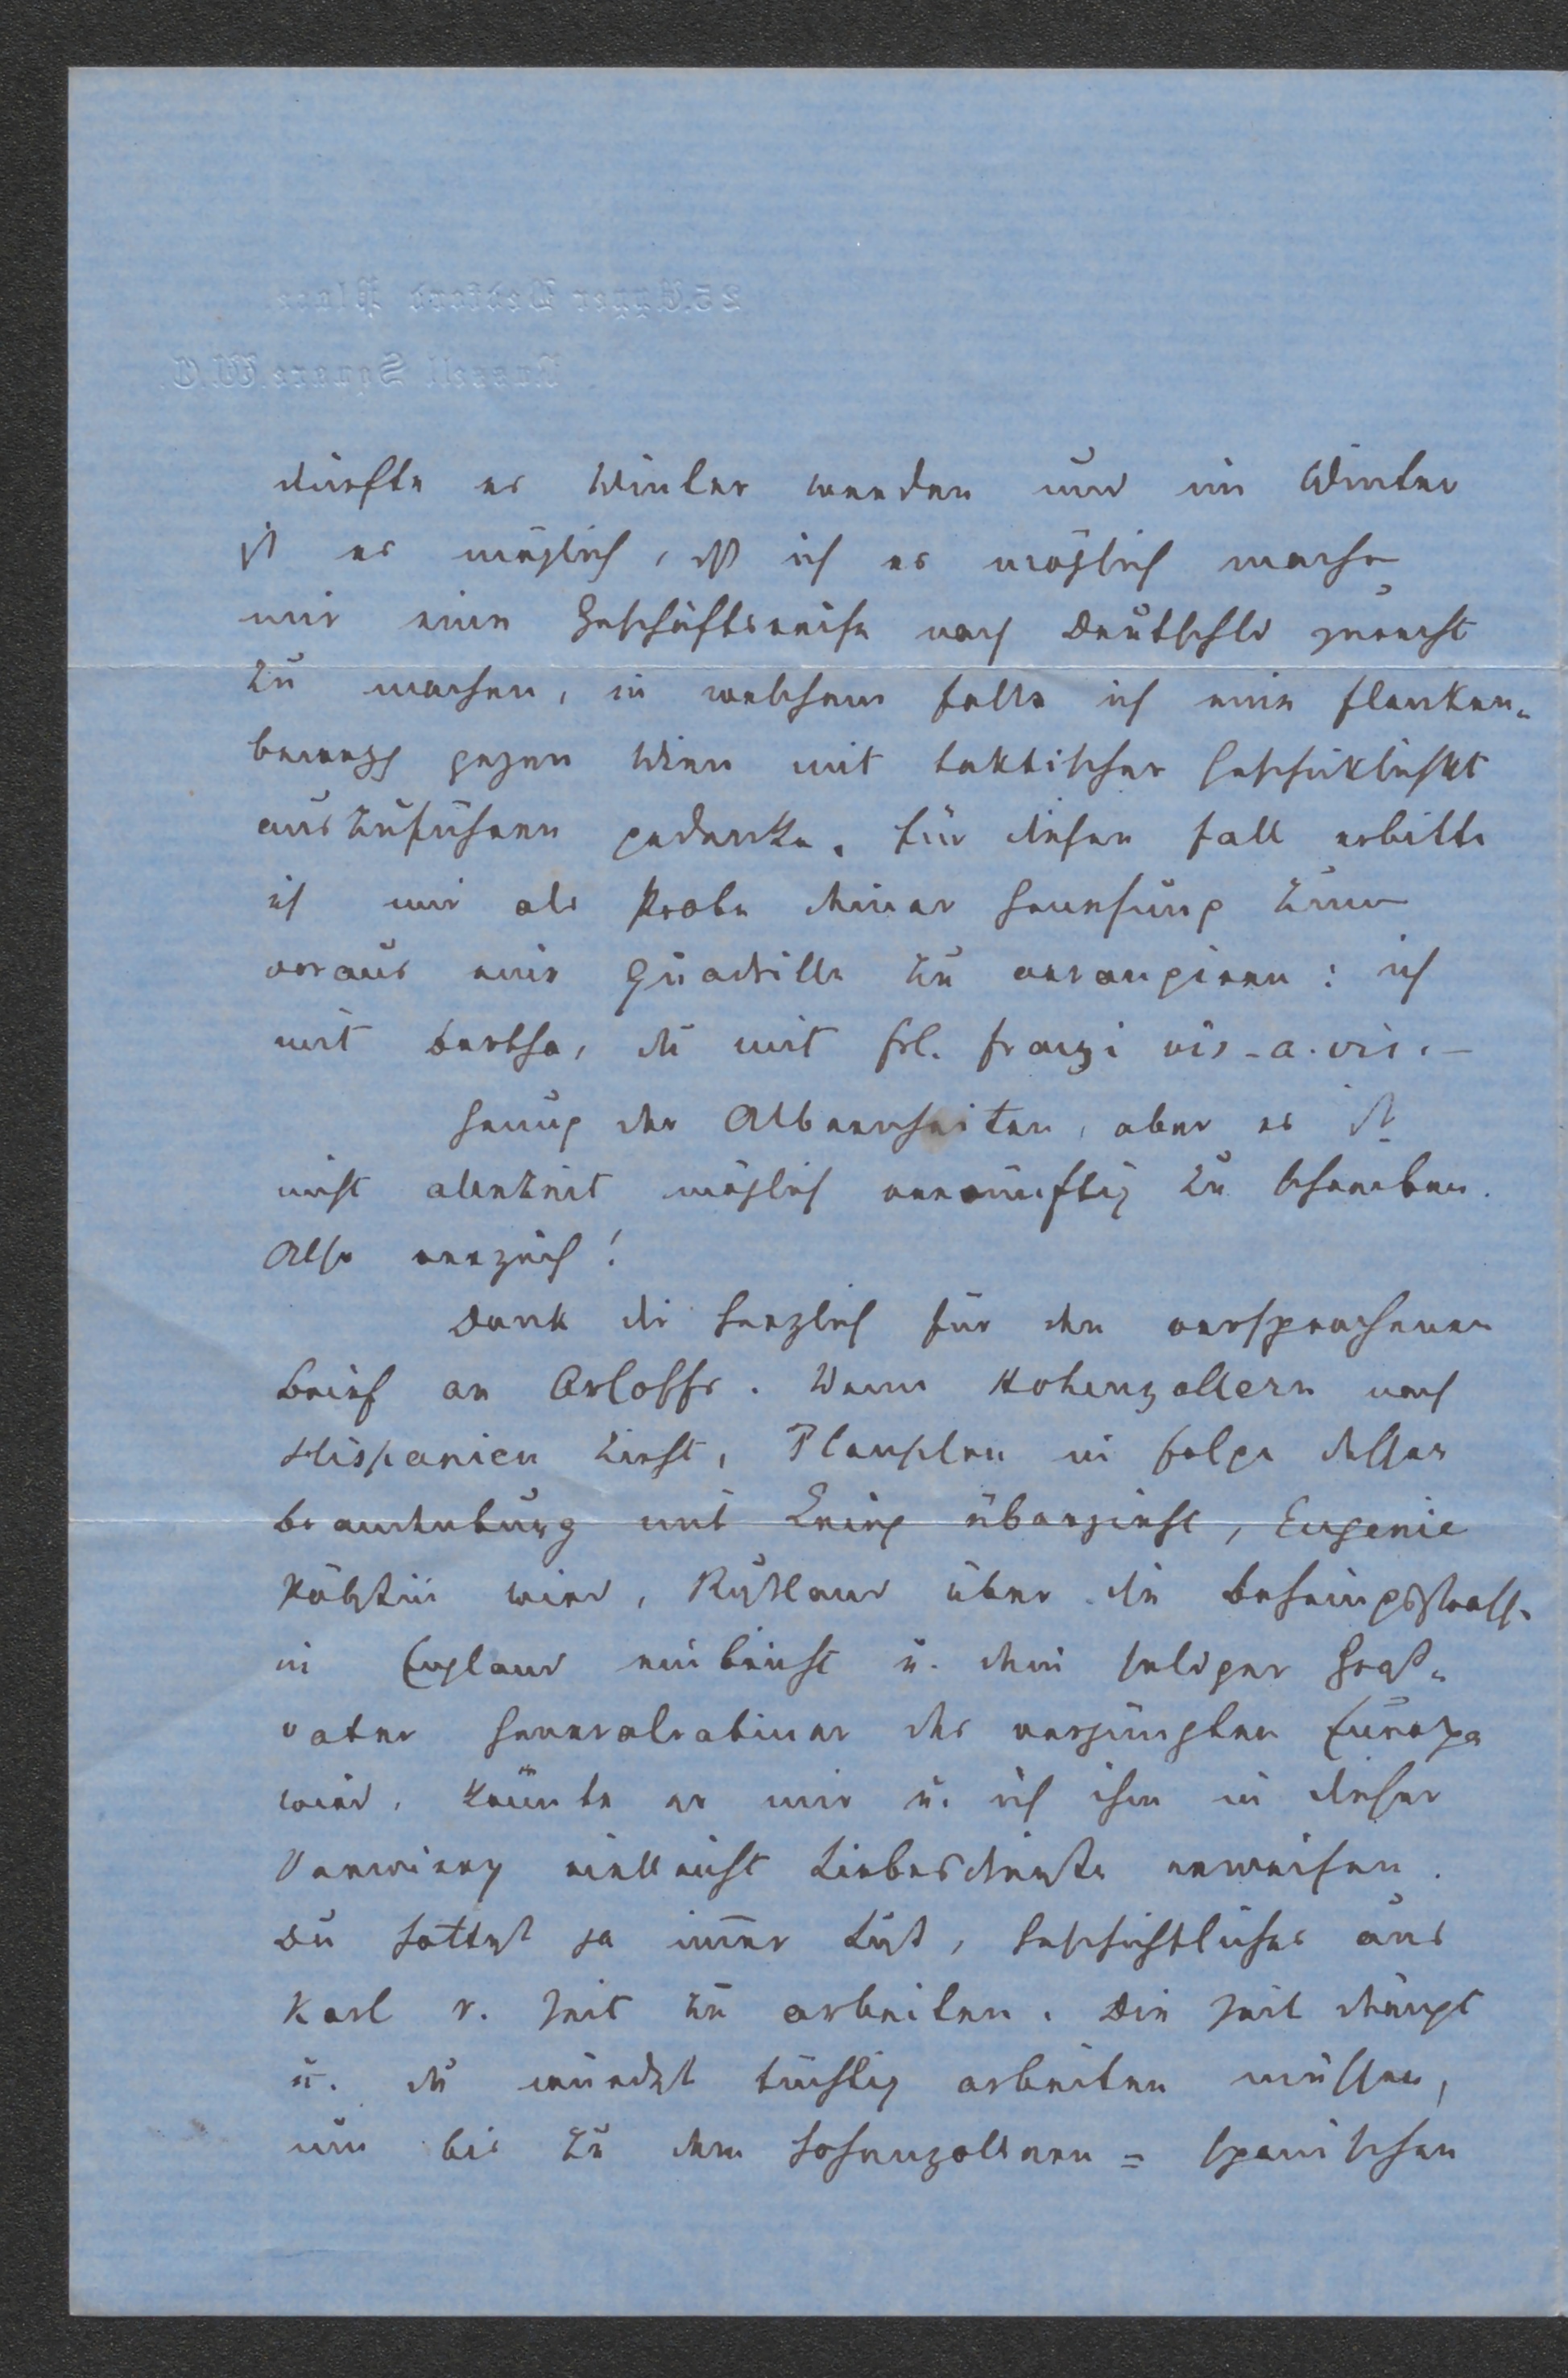 25. Upper Bedford Place
Russell Square. W.C.
dürfte es Winter werden und im Winter
ist es möglich, dß ich es möglich mache
mir eine Geschäftsreise nach Deutschld zurecht
zu machen, in welchem Falle ich eine Flanken-
bewegg gegen Wien mit taktischer Geschiklichkt
auszuführen gedenke. Für diesen Fall erbitte
ich mir als Probe deiner Gesinnung zum
voraus eine Quadrille zu arrangieren: ich
mit Bertha, du mit Frl. Franzi vis-a-vis.—
Genug der Albernheiten, aber es ist
nicht allezeit möglich vernünftig zu schreiben.
Also verzeih!
Dank dir herzlich für den versprochenen
Brief an Orloffs. Wenn Hohenzollern nach
Hispanien zieht, in Folge dessen
Brandenburg mit Krieg überzieht, Eugenie
Päbstin wird, Rußland über die Behringsstrasse
in England einbricht u. dein seliger Groß-
vater Generalrabiner des verjüngten Europa
wird, könnte er mir u. ich ihm in dieser
Verwirrg vielleicht Liebesdienste erweisen.
Du hattest ja imer Lust, Geschichtliches aus
Karl V. Zeit zu arbeiten. Die Zeit drängt
u. du würdest tüchtig arbeiten müssen,
um bis zu dem Hohenzollern = spanischen